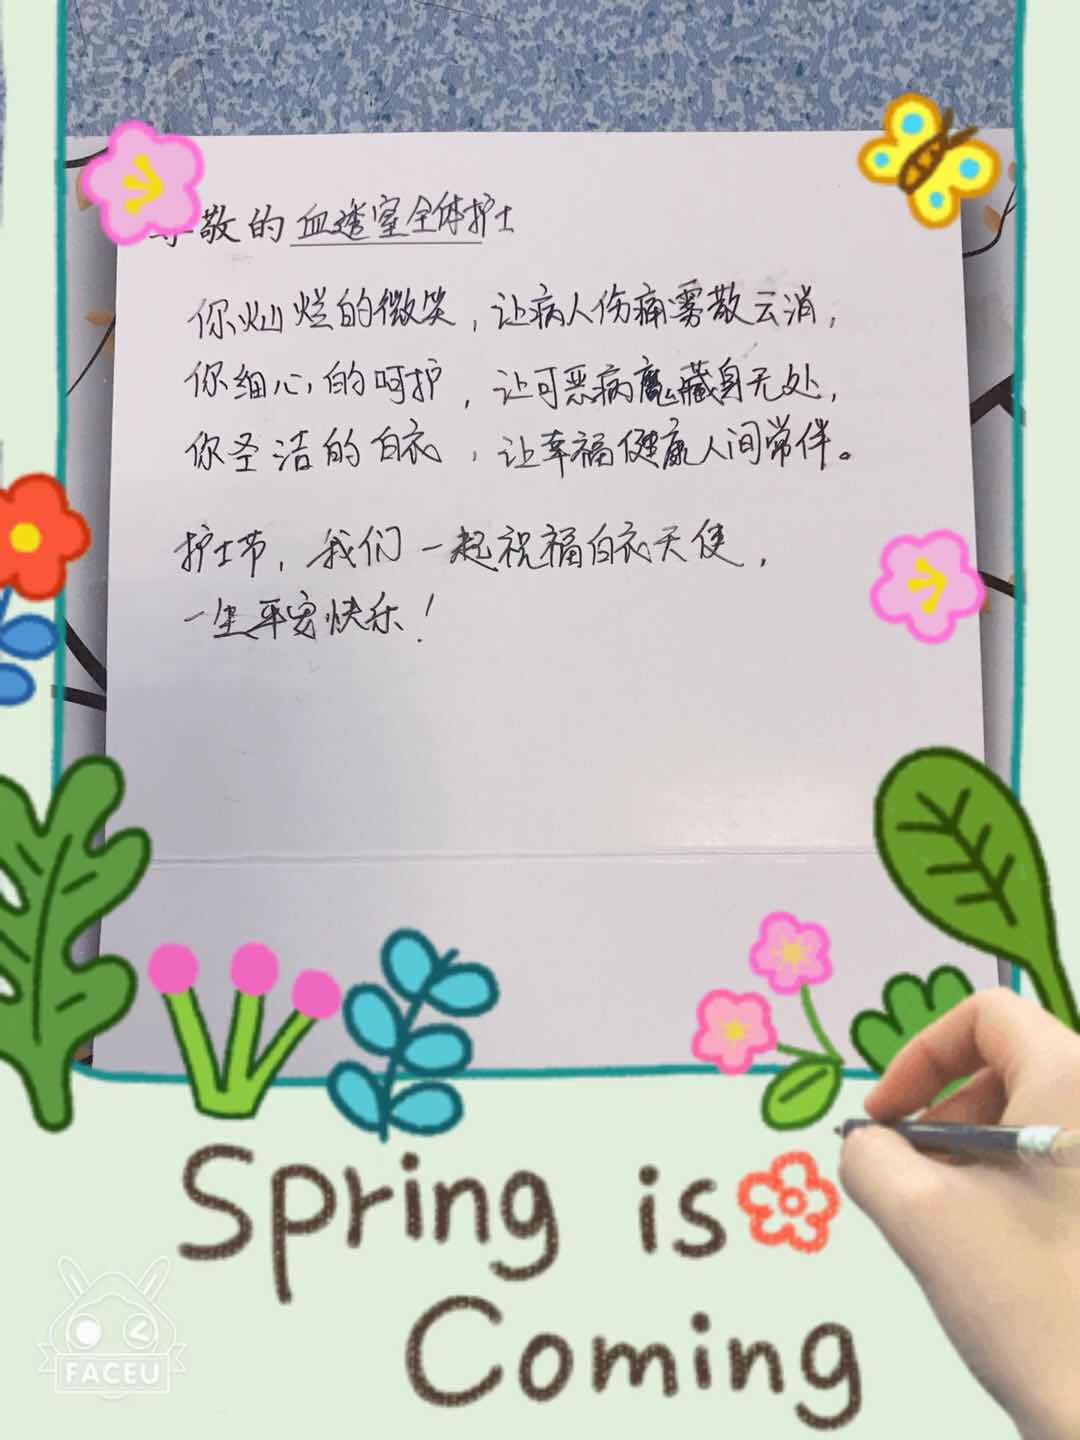 尊敬的血透室全体护士
你灿烂的微笑，让病人伤痛雾散云消，
你细心的呵护，让可恶病魔藏身无处，
你圣洁的白衣，让幸福健康人间常伴。
护士节，我们一起祝福白衣天使，
一生平安快乐！
Spring is
Coming
FACEU